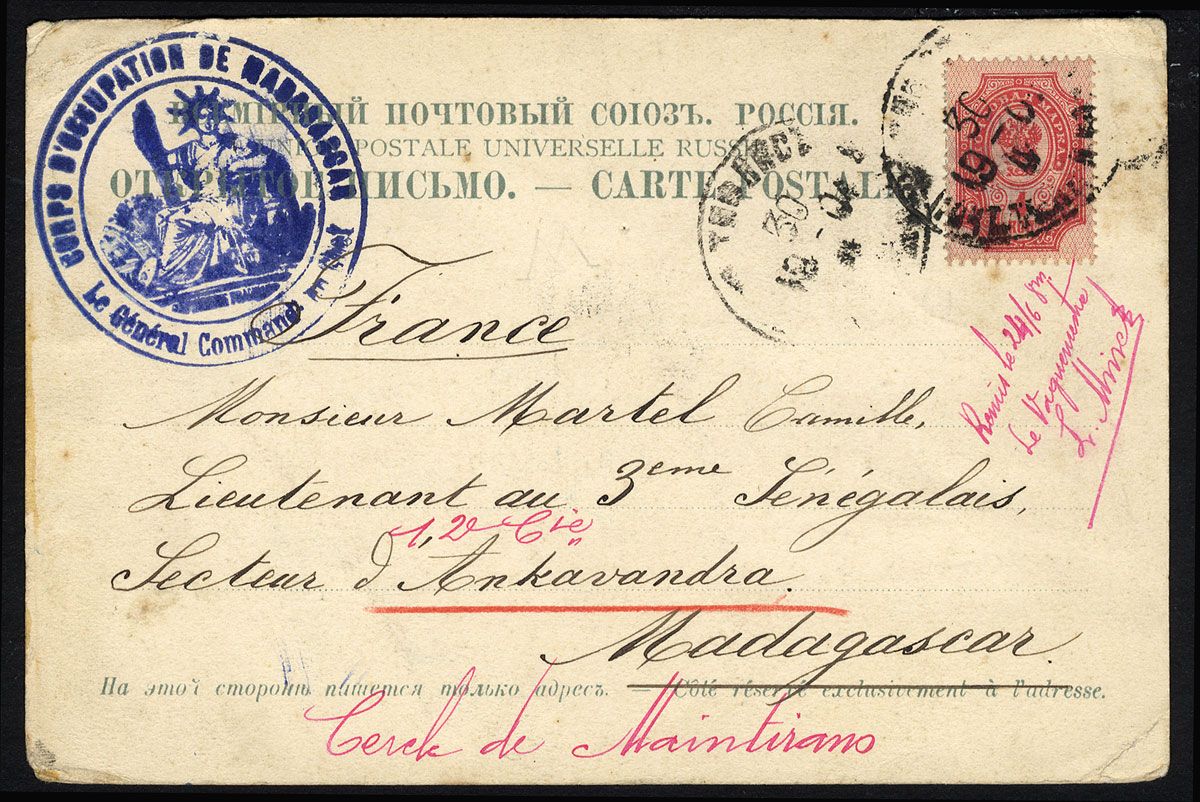 CORPS D'OCCUPATION DE MADAGASCAR
Le Général Commandt
ВСЕМІРНЫЙ ПОЧТОВЫЙ СОЮЗЪ. РОССІЯ.
UNION POSTALE UNIVERSELLE RUSSIE
ОТКРЫТОЕ ПИСЬМО. — CARTE POSTALE
30
19 04
30
19 0
МАРКА
France
Monsieur Martel Camille,
Lieutenant au 3eme Sénégalais,
1, 2e Cie
Secteur d'Ankavandra.
Madagascar.
Remis le 24/6
Le Vaguemestre
На этой сторонѣ пишется только адресъ. — Côté réservé exclusivement à l'adresse.
Cercle de Maintirano